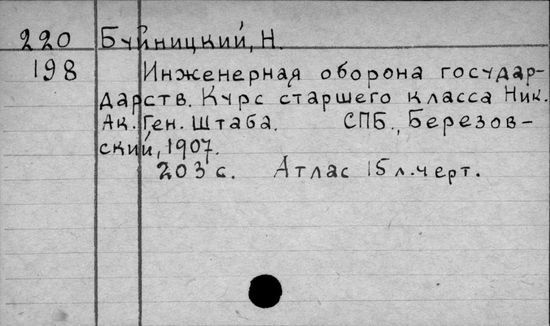 220 Буйницкий, Н.
198 Инженерная оборона государ-
дарств. Курс старшего класса Ник.
Ак. Ген. Штаба. СПБ., Березов-
ский, 1907.
203 с. Атлас 15 л. черт.